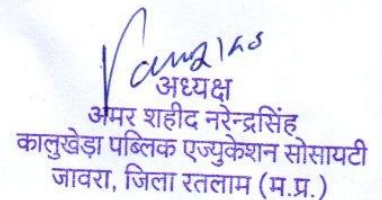 अध्यक्ष
अमर शहीद नरेन्द्रसिंह
कालुखेड़ा पब्लिक एज्युकेशन सोसायटी
जावरा, जिला रतलाम (म.प्र.)